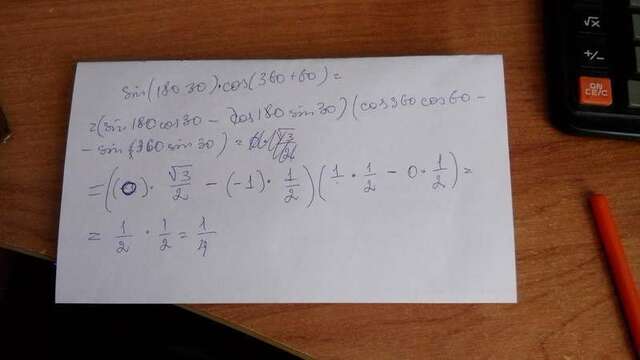 √x
+/-
ON
CE/C
sin(180 30)·cos(360+60)=
=(sin180cos30 - cos180 sin30)(cos360cos60 -
- sin 360 sin 30) =
=((0)· √3/2 - (-1)· 1/2)(1 · 1/2 - 0 · 1/2)=
= 1/2 · 1/2 = 1/4